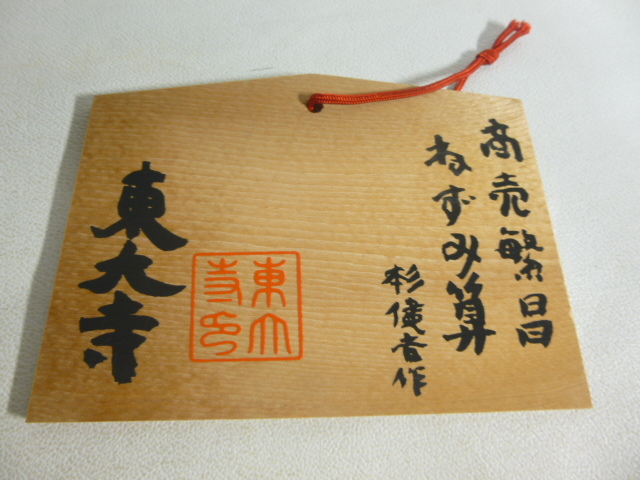 商売繁昌
ねずみ算
杉健吉作
東大寺
東大
寺印